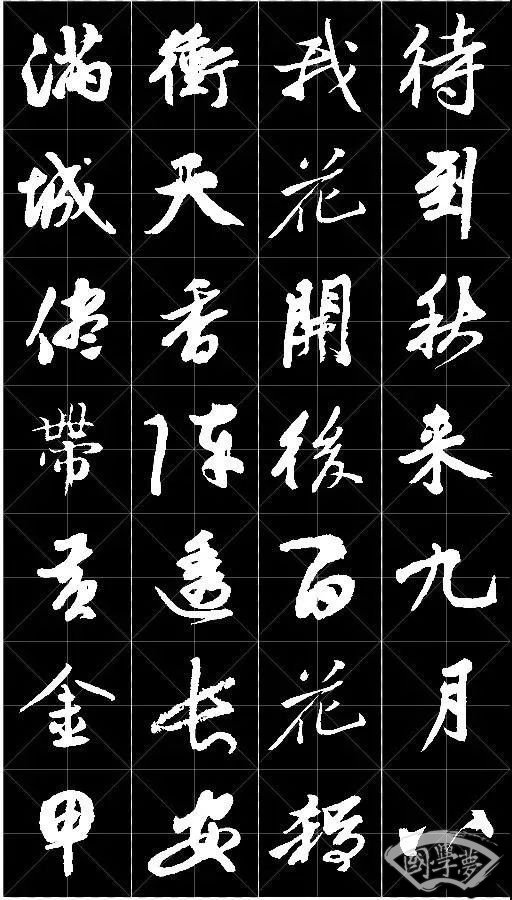 待到秋来九月八
我花開後百花殺
衝天香陣透長安
滿城儘帶黃金甲
國學夢